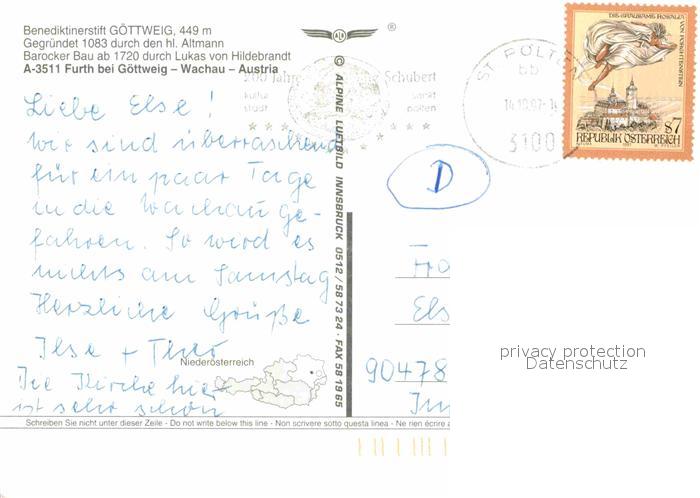 Benediktinerstift GÖTTWEIG, 449 m
Gegründet 1083 durch den hl. Altmann
Barocker Bau ab 1720 durch Lukas von Hildebrandt
A-3511 Furth bei Göttweig – Wachau – Austria
Liebe Else!
Wir sind überraschend
für ein paar Tage
in die Wachau ge-
fahren. So wird es
nichts am Samstag
Herzliche Grüße
Ilse + Theo
Die Kirche hier
ist sehr schön
Niederösterreich
© ALPINE LUFTBILD INNSBRUCK 0512/58 73 24 · FAX 58 19 65
ALI
®
200 Jahre Schubert
kultur
stadt
sankt
pölten
ST. PÖLTEN
bb
14.10.97
3100
DIE GRAUSAME ROSALIA VON FORCHTENSTEIN
S7
REPUBLIK ÖSTERREICH
D
Els
90478
privacy protection
Datenschutz
Schreiben Sie nicht unter dieser Zeile - Do not write below this line - Non scrivere sotto questa linea - Ne rien écrire